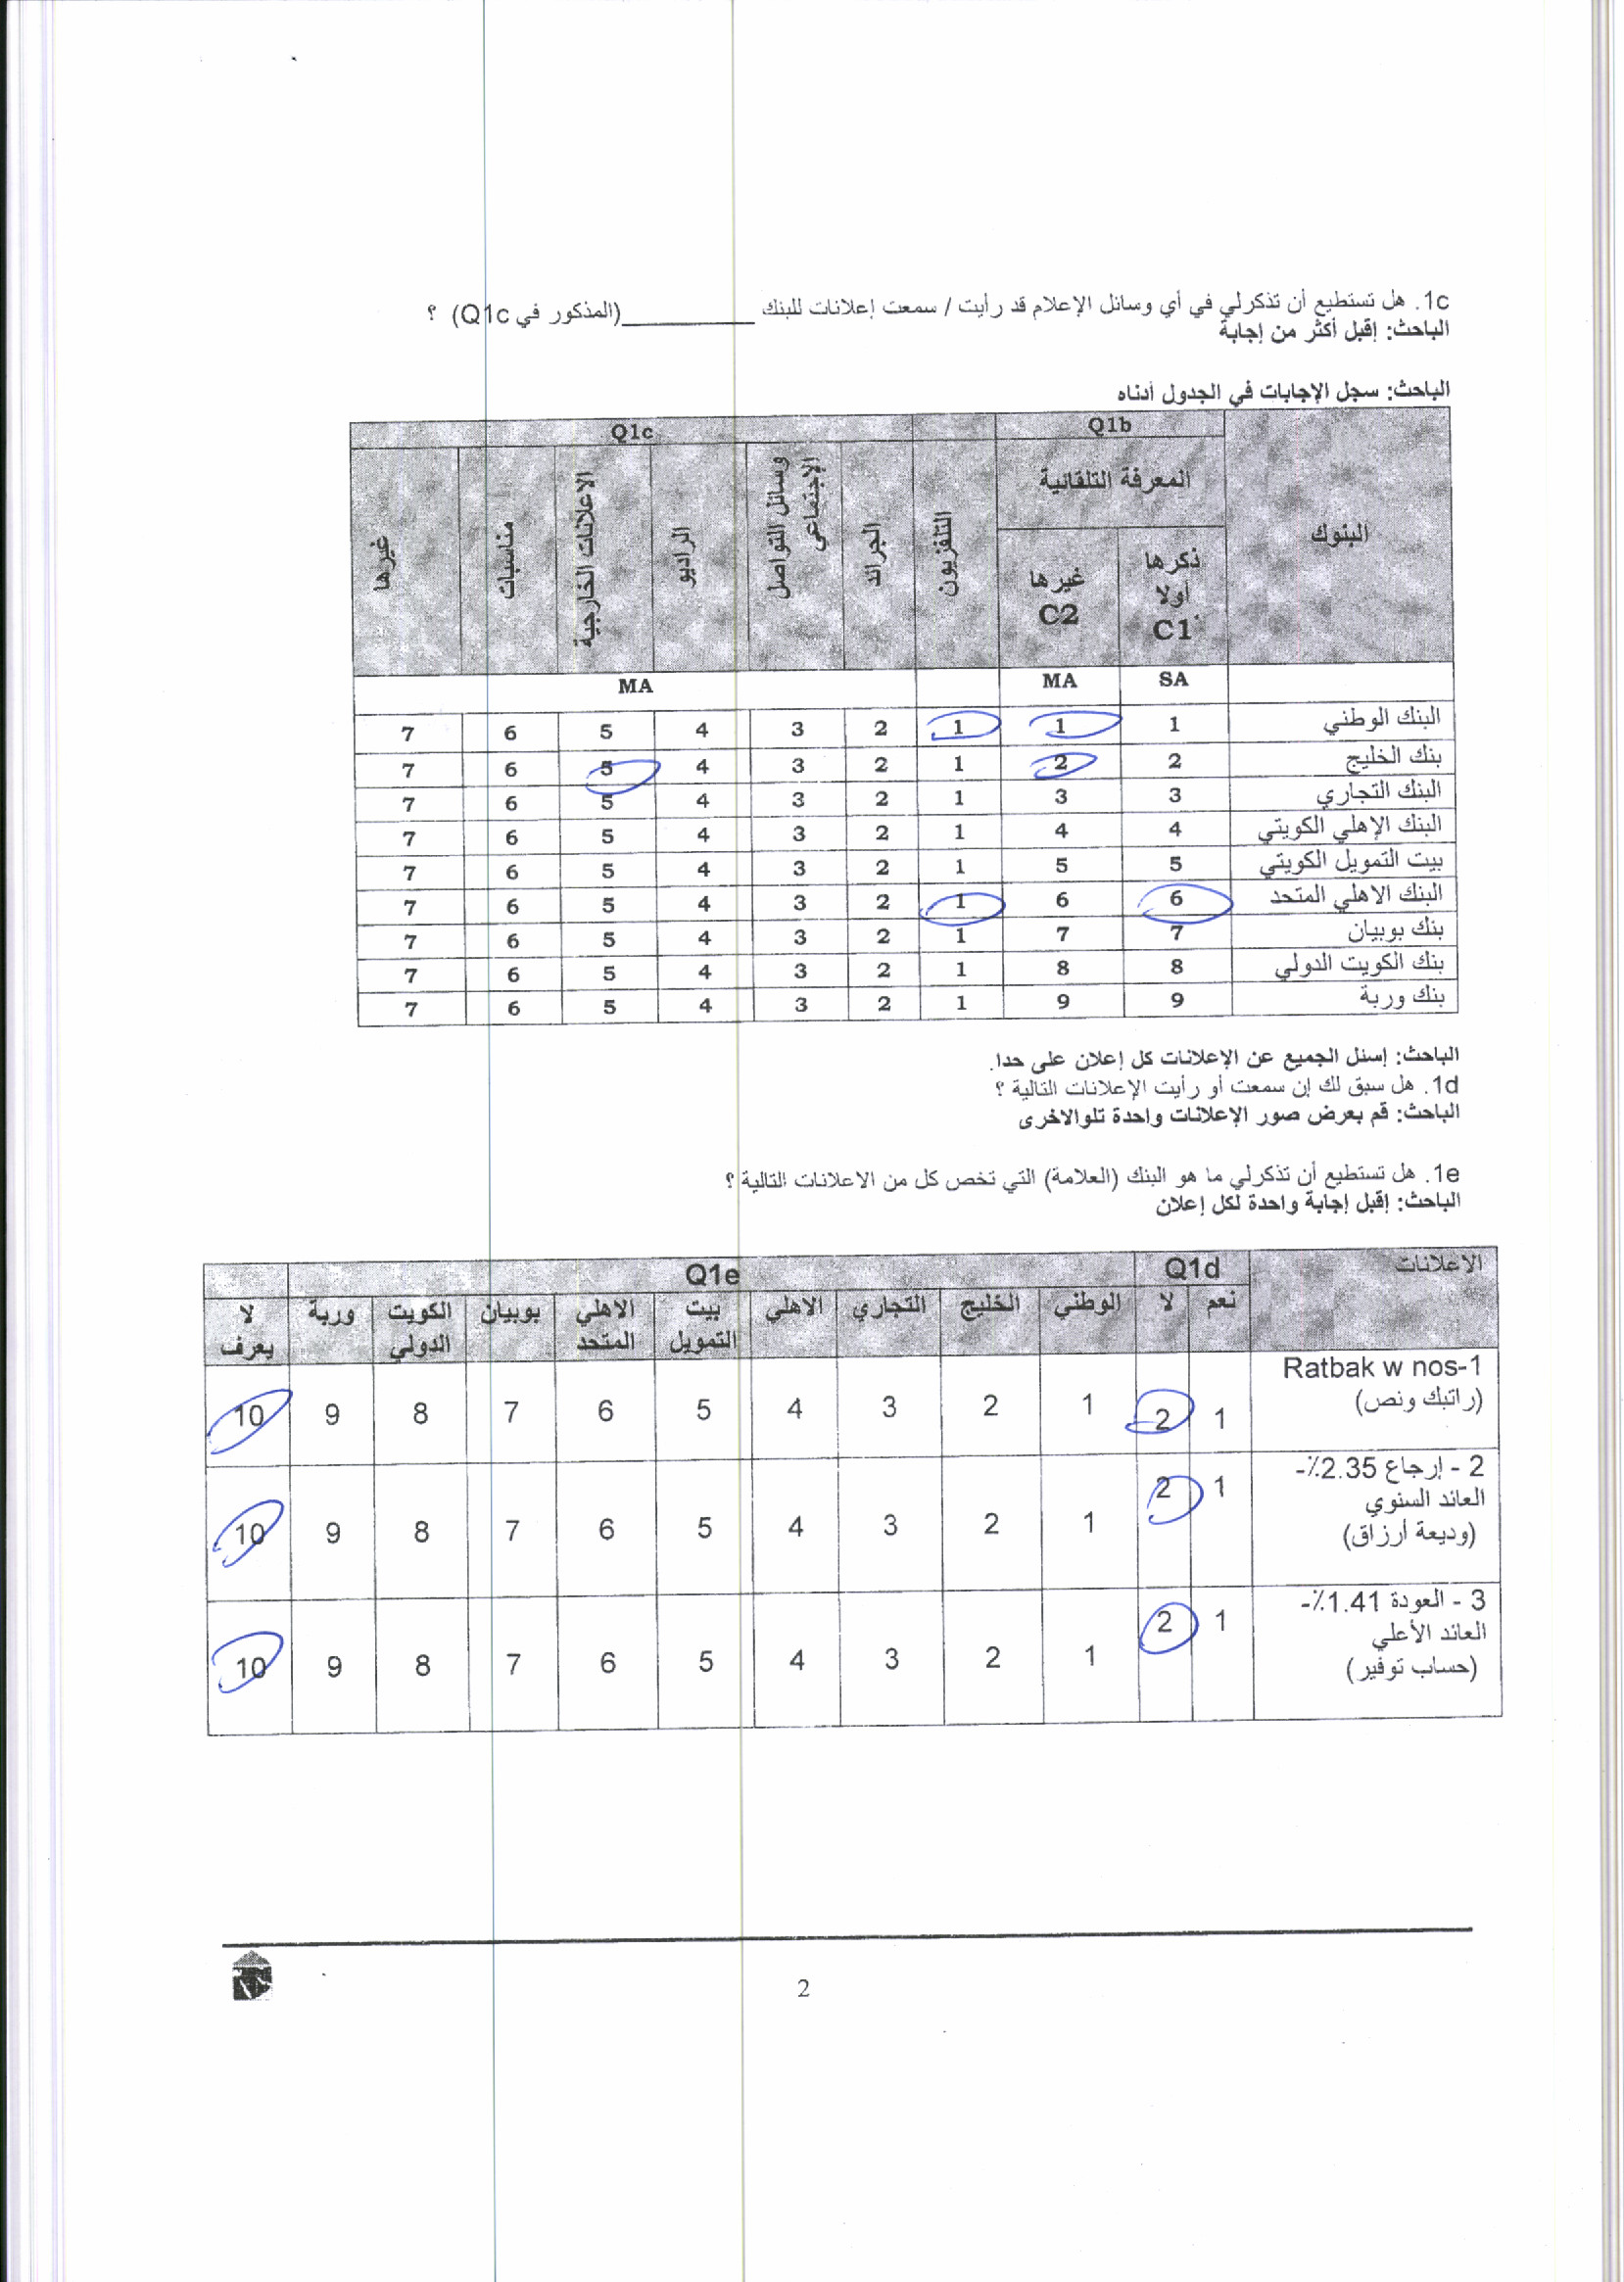 1c. هل تستطيع أن تذكرلي في أي وسائل الإعلام قد رأيت / سمعت إعلانات للبنك __________(المذكور في Q1c) ؟
الباحث: إقبل أكثر من إجابة
الباحث: سجل الإجابات في الجدول أدناه
Q1b Q1c
البنوك المعرفة التلقائية التلفزيون الجرائد وسائل التواصل الإجتماعي الراديو الاعلانات الخارجية مناسبات غيرها
ذكرها أولا C1 غيرها C2
SA MA MA
البنك الوطني 1 1 1 2 3 4 5 6 7
بنك الخليج 2 2 1 2 3 4 5 6 7
البنك التجاري 3 3 1 2 3 4 5 6 7
البنك الإهلي الكويتي 4 4 1 2 3 4 5 6 7
بيت التمويل الكويتي 5 5 1 2 3 4 5 6 7
البنك الاهلي المتحد 6 6 1 2 3 4 5 6 7
بنك بوبيان 7 7 1 2 3 4 5 6 7
بنك الكويت الدولي 8 8 1 2 3 4 5 6 7
بنك وربة 9 9 1 2 3 4 5 6 7
الباحث: إسئل الجميع عن الإعلانات كل إعلان على حدا.
1d. هل سبق لك إن سمعت أو رأيت الإعلانات التالية ؟
الباحث: قم بعرض صور الإعلانات واحدة تلوالاخرى
1e. هل تستطيع أن تذكرلي ما هو البنك (العلامة) التي تخص كل من الاعلانات التالية ؟
الباحث: إقبل إجابة واحدة لكل إعلان
الاعلانات Q1d Q1e
نعم لا الوطني الخليج التجاري الاهلي بيت التمويل الاهلي المتحد بوبيان الكويت الدولي وربة لا يعرف
Ratbak w nos-1
(راتبك ونص) 1 2 1 2 3 4 5 6 7 8 9 10
2 - إرجاع 2.35٪-
العائد السنوي
(وديعة أرزاق) 1 2 1 2 3 4 5 6 7 8 9 10
3 - العودة 1.41٪-
العائد الأعلي
(حساب توفير) 1 2 1 2 3 4 5 6 7 8 9 10
2